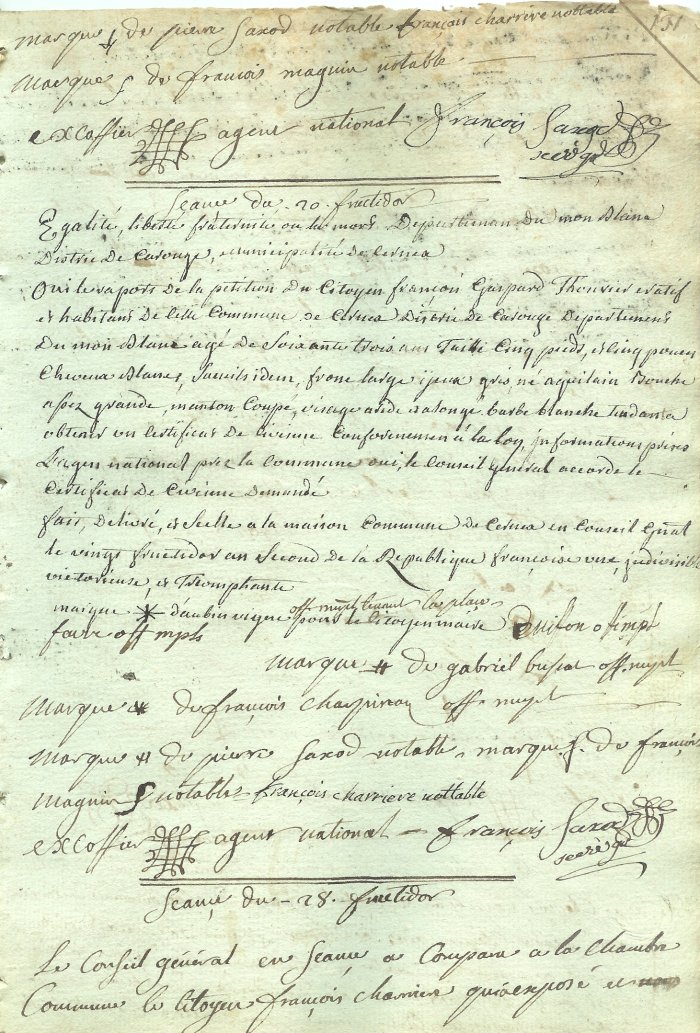 marque de pierre Saxod notable françois charriere nottable 131
Marque f de françois magnin notable
excoffier agent national François Saxod
secrég.re
Séance du 20. fructidor
Egalité, liberté fraternité ou la mort. Departement du mon Blanc
District De Carouge, municipalité de Cernex
Oui le raport de la petition du Citoyen françois Gaspard Thouvier natif
et habitant de cette Commune de Cernex District de Carouge Departement
Du mon Blanc agé de Soixante trois ans Taille Cinq pieds, et cinq pouces
Cheveux Blancs, Sourcils idem, front large ijeux gris, né aquilain Bouche
assez grande, manton Coupé, visage aride et alongé barbe blanche tendant a
obtenir un Certificat de Civisme Conformement a la loy, informations prises
L'agent national prez la commune oui, le Conseil général accorde le
Certificat de Civisme demandé
fait, Delivré, et Scellé a la maison Commune de Cernex en Conseil Gñal
le vingt fructidor an Second de la Republique françoise une, indivisible
victorieuse, et Triomphante
off. mupl tenant la place
marque d'aubin vigne pour le citoyen maire Duison o
favre off mpls
marque # de gabriel bussat off. mupl
Marque # de françois Charpineaz off. mupl
Marque # de pierre Saxod notable, marque f. de françois
Magnin notable françois charriere nottable
excoffier agent national françois Saxod
secrég.re
Séance du 28. fructidor
Le Conseil général en Séance a Comparu a la Chambre
Commune le Citoyen françois Charriere qui a exposé